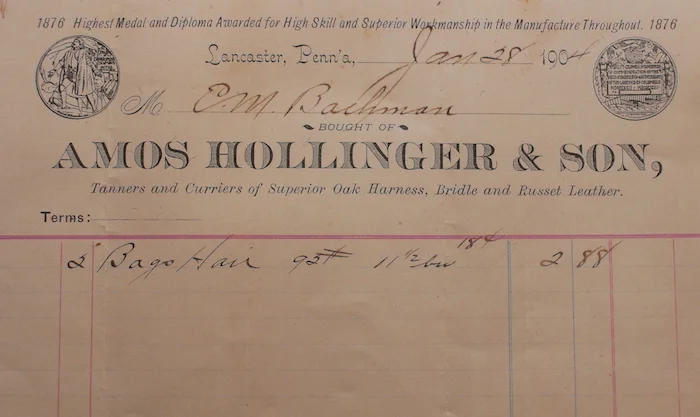 1876 Highest Medal and Diploma Awarded for High Skill and Superior Workmanship in the Manufacture Throughout. 1876
Lancaster, Penn'a, Jan 28 1904
M E. M. Bachman
BOUGHT OF
AMOS HOLLINGER & SON,
Tanners and Curriers of Superior Oak Harness, Bridle and Russet Leather.
Terms:
2 Bags Hair 92# 11 1/2 bu 2 88